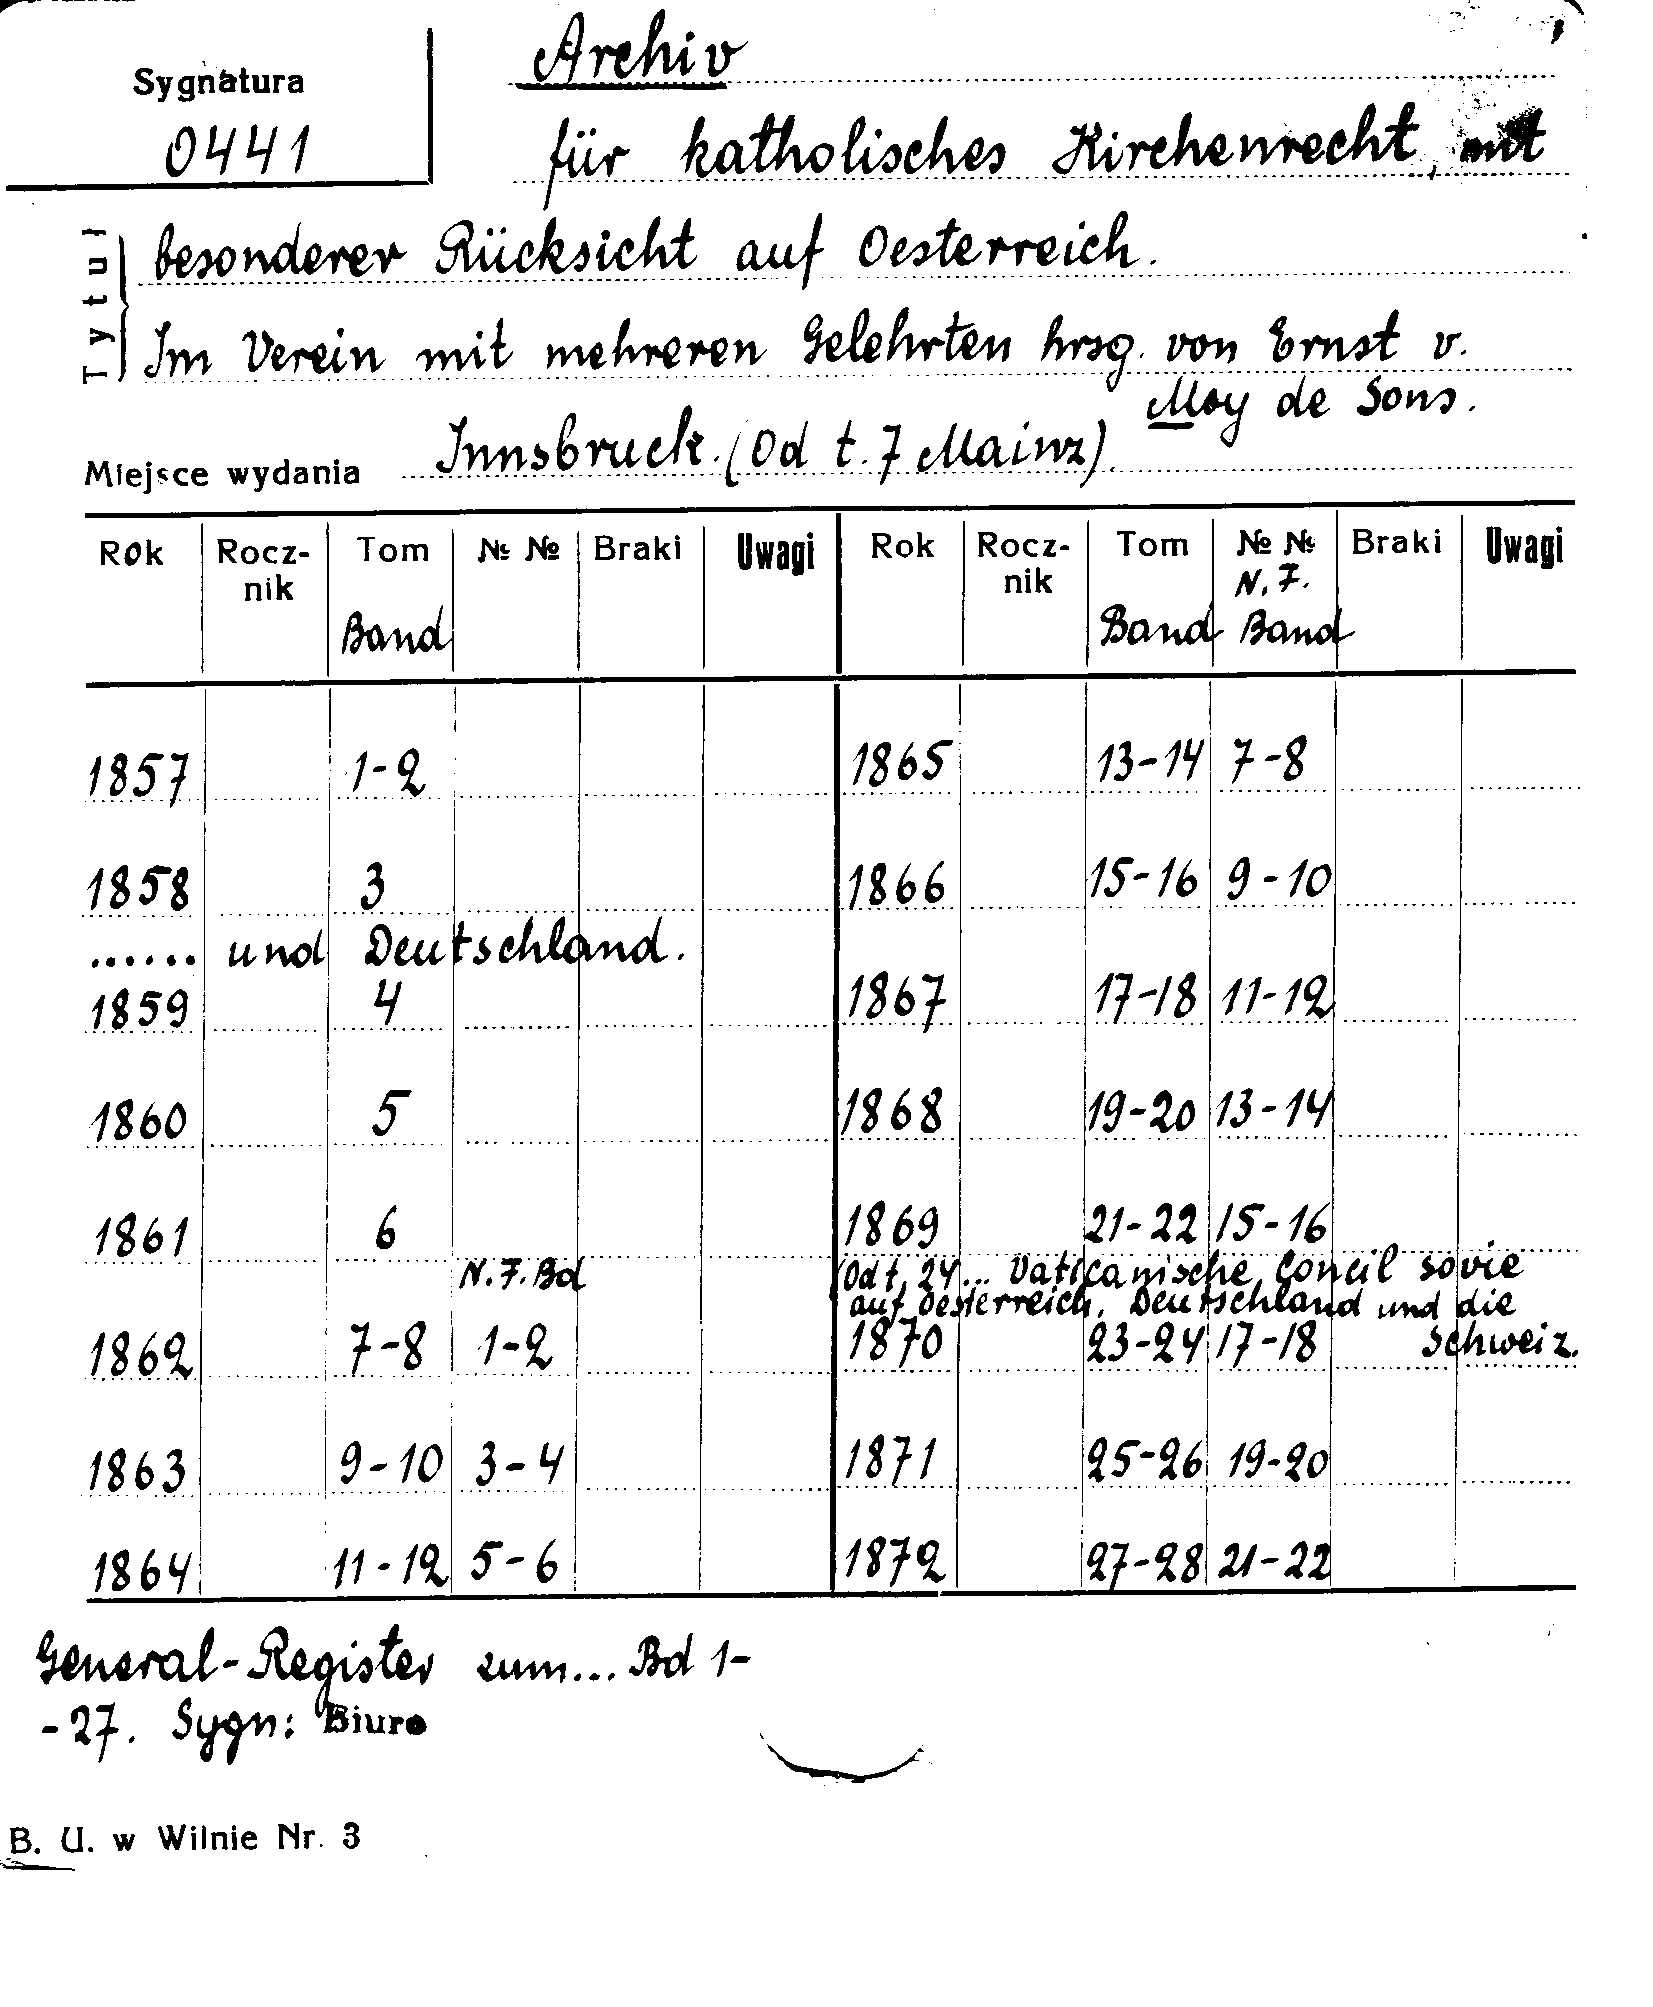 Archiv
Sygnatura
0441
für katholisches Kirchenrecht, mit
besonderer Rücksicht auf Oesterreich.
Tytuł
Im Verein mit mehreren Gelehrten hrsg. von Ernst v.
Moy de Sons.
Miejsce wydania Innsbruck. (Od t. 7 Mainz).
Rok Rocz-nik Tom № № Braki Uwagi Rok Rocz-nik Tom № № Braki Uwagi
N. F.
Band Band Band
1857 1-2 1865 13-14 7-8
1858 3 1866 15-16 9-10
...... und Deutschland.
1859 4 1867 17-18 11-12
1860 5 1868 19-20 13-14
1861 6 1869 21-22 15-16
N. F. Bd (Od t. 24 ... Vaticanische Concil sovie
auf Oesterreich, Deutschland und die
1862 7-8 1-2 1870 23-24 17-18 Schweiz.
1863 9-10 3-4 1871 25-26 19-20
1864 11-12 5-6 1872 27-28 21-22
General-Register zum... Bd 1-
-27. Sygn: Biuro
B. U. w Wilnie Nr. 3